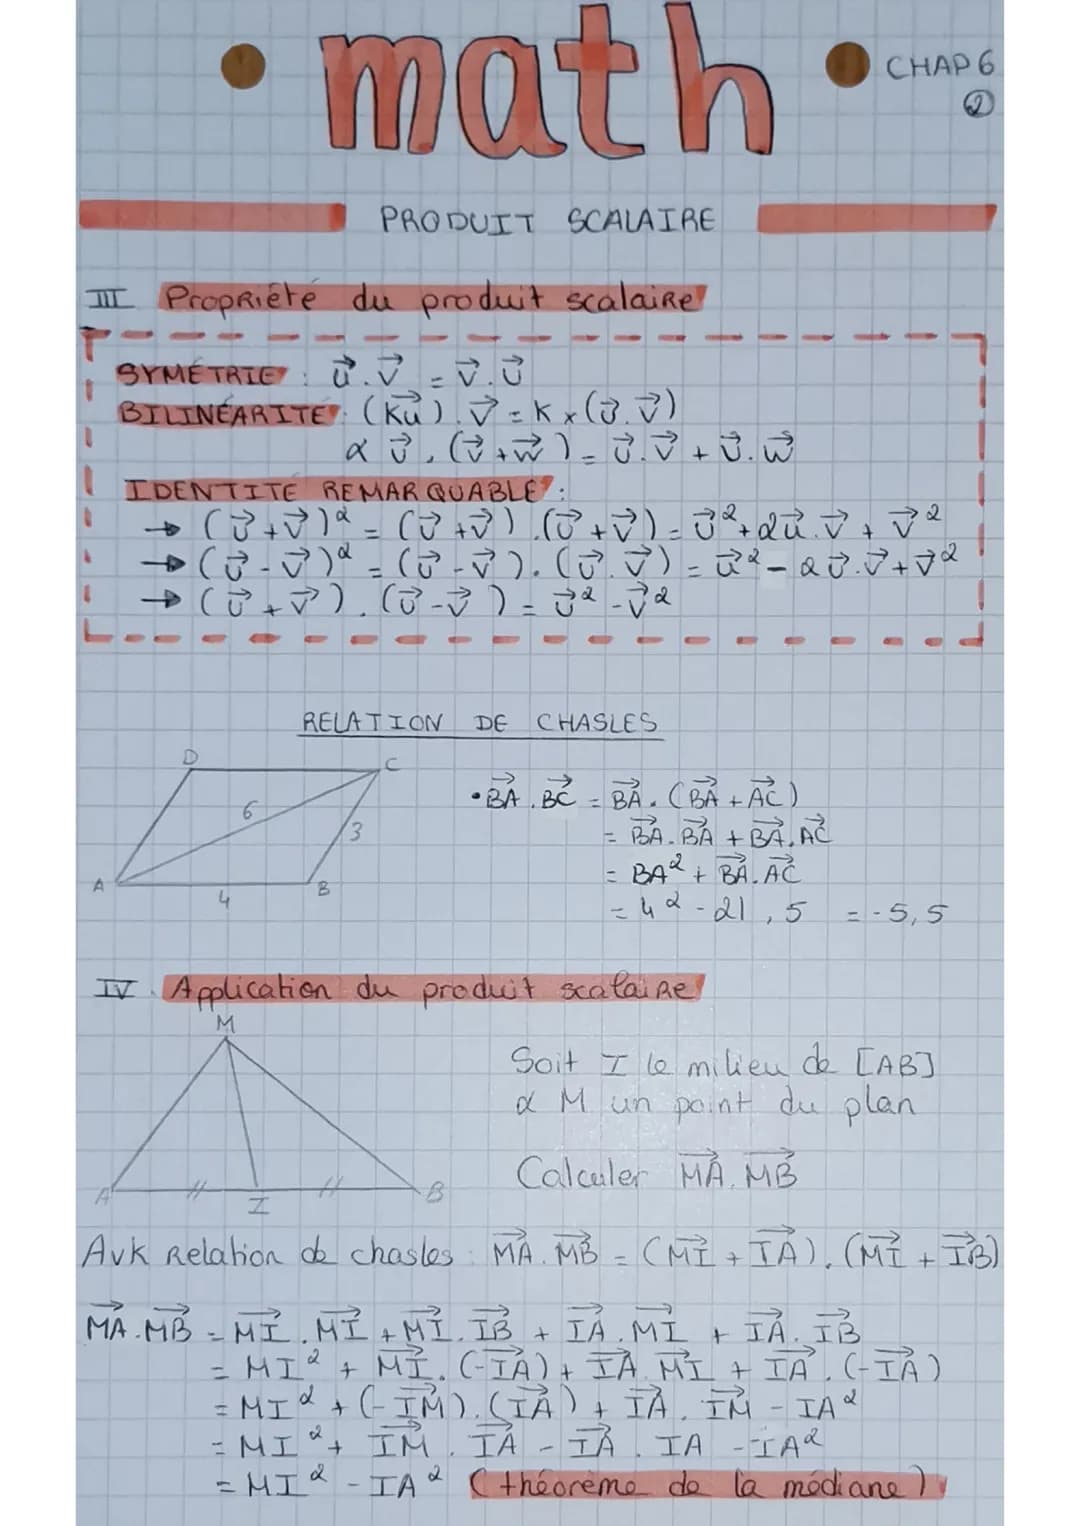 math
CHAP 6
②
PRODUIT SCALAIRE
III Propriété du produit scalaire
SYMÉTRIE : u⃗.v⃗ = v⃗.u⃗
BILINÉARITÉ : (ku⃗).v⃗ = k × (u⃗.v⃗)
& u⃗.(v⃗+w⃗) = u⃗.v⃗ + u⃗.w⃗
IDENTITE REMARQUABLE :
→ (u⃗+v⃗)² = (u⃗+v⃗).(u⃗+v⃗) = u⃗²+2u⃗.v⃗+v⃗²
→ (u⃗-v⃗)² = (u⃗-v⃗).(u⃗.v⃗) = u⃗²-2u⃗.v⃗+v⃗²
→ (u⃗+v⃗).(u⃗-v⃗) = u⃗²-v⃗²
RELATION DE CHASLES
D
C
6
3
A
4
B
• BA⃗.BC⃗ = BA⃗.(BA⃗+AC⃗)
= BA⃗.BA⃗ + BA⃗.AC⃗
= BA² + BA⃗.AC⃗
= 4² - 21,5 = -5,5
IV Application du produit scalaire
M
A
I
B
Soit I le milieu de [AB]
& M un point du plan
Calculer MA⃗.MB⃗
Avk Relation de chasles : MA⃗.MB⃗ = (MI⃗ + IA⃗).(MI⃗ + IB⃗)
MA⃗.MB⃗ = MI⃗.MI⃗ + MI⃗.IB⃗ + IA⃗.MI⃗ + IA⃗.IB⃗
= MI² + MI⃗.(-IA⃗) + IA⃗.MI⃗ + IA⃗.(-IA⃗)
= MI² + (-IM⃗).(IA⃗) + IA⃗.IM⃗ - IA²
= MI² + IM⃗.IA⃗ - IA⃗.IA - IA²
= MI² - IA² (théorème de la médiane)